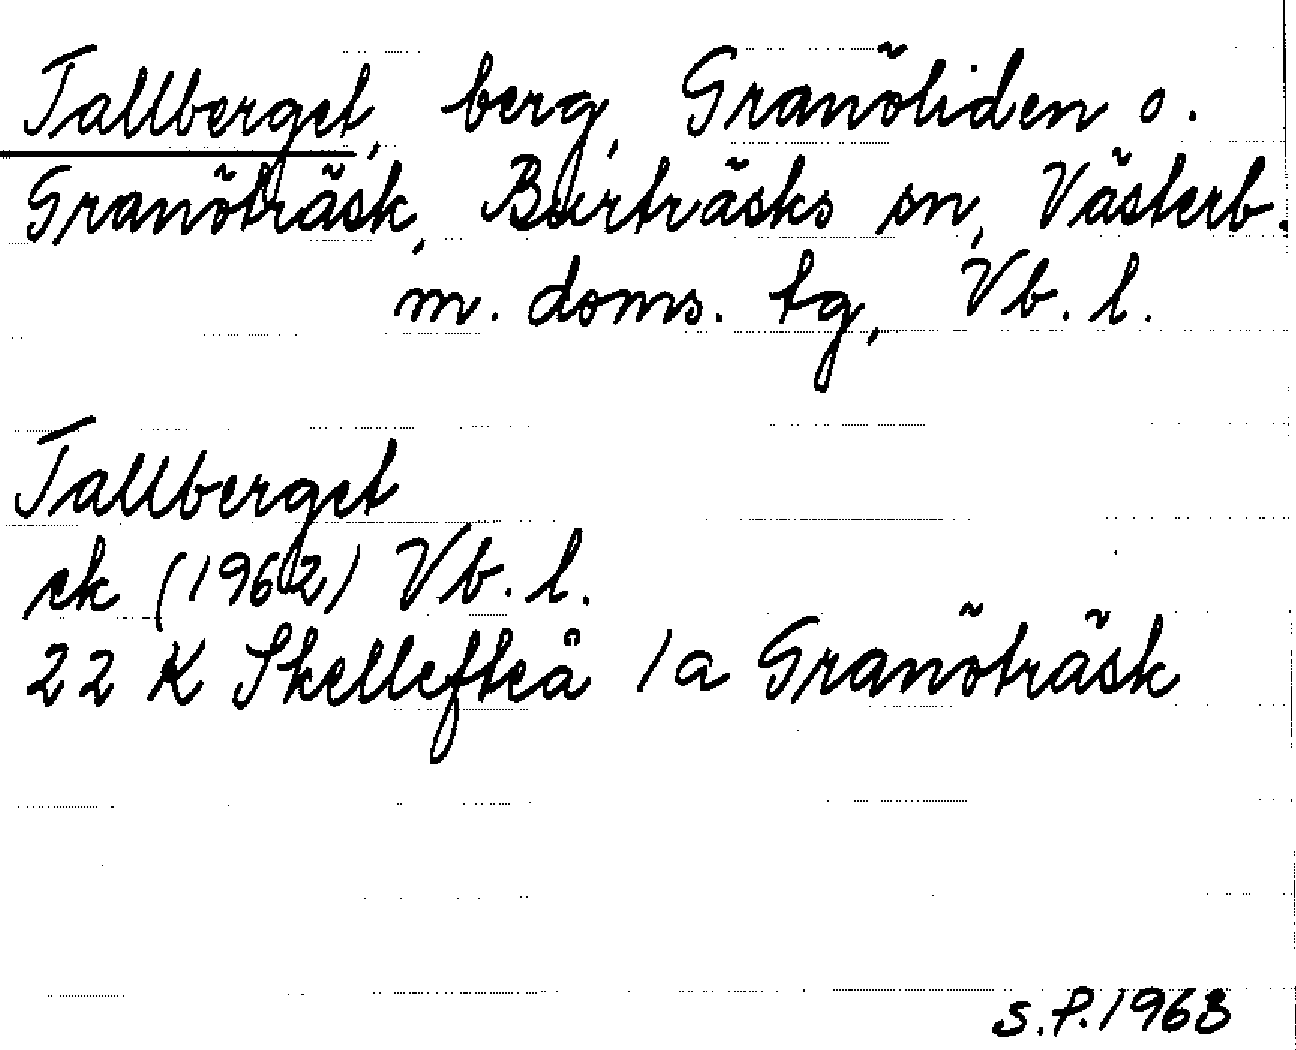 Tallberget, berg, Granöliden o.
Granöträsk, Burträsks sn, Västerb.
m. doms. tg, Vb. l.
Tallberget
ek (1962) Vb. l.
22 K Skellefteå 1a Granöträsk
S.P. 1963